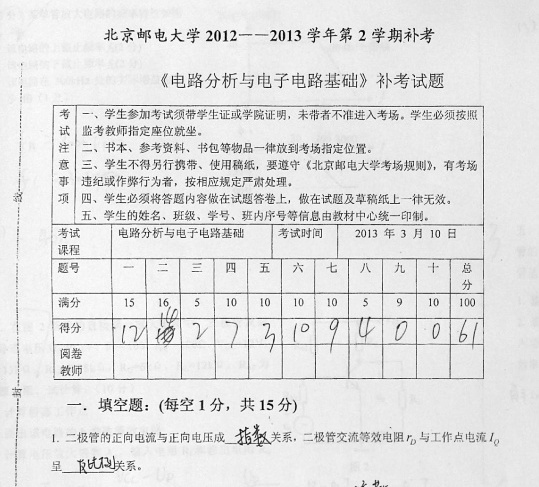 北京邮电大学2012——2013学年第2学期补考
《电路分析与电子电路基础》补考试题
考试注意事项
一、学生参加考试须带学生证或学院证明，未带者不准进入考场。学生必须按照
监考教师指定座位就坐。
二、书本、参考资料、书包等物品一律放到考场指定位置。
三、学生不得另行携带、使用稿纸，要遵守《北京邮电大学考场规则》，有考场
违纪或作弊行为者，按相应规定严肃处理。
四、学生必须将答题内容做在试题答卷上，做在试题及草稿纸上一律无效。
五、学生的姓名、班级、学号、班内序号等信息由教材中心统一印制。
考试课程 电路分析与电子电路基础 考试时间 2013 年 3 月 10 日
题号 一 二 三 四 五 六 七 八 九 十 总分
满分 15 16 5 10 10 10 10 5 9 10 100
得分 12 14 2 7 3 10 9 4 0 0 61
阅卷教师
一．填空题：(每空1分，共15分)
1. 二极管的正向电流与正向电压成 指数 关系，二极管交流等效电阻 r_D 与工作点电流 I_Q
呈 反比例 关系。
封